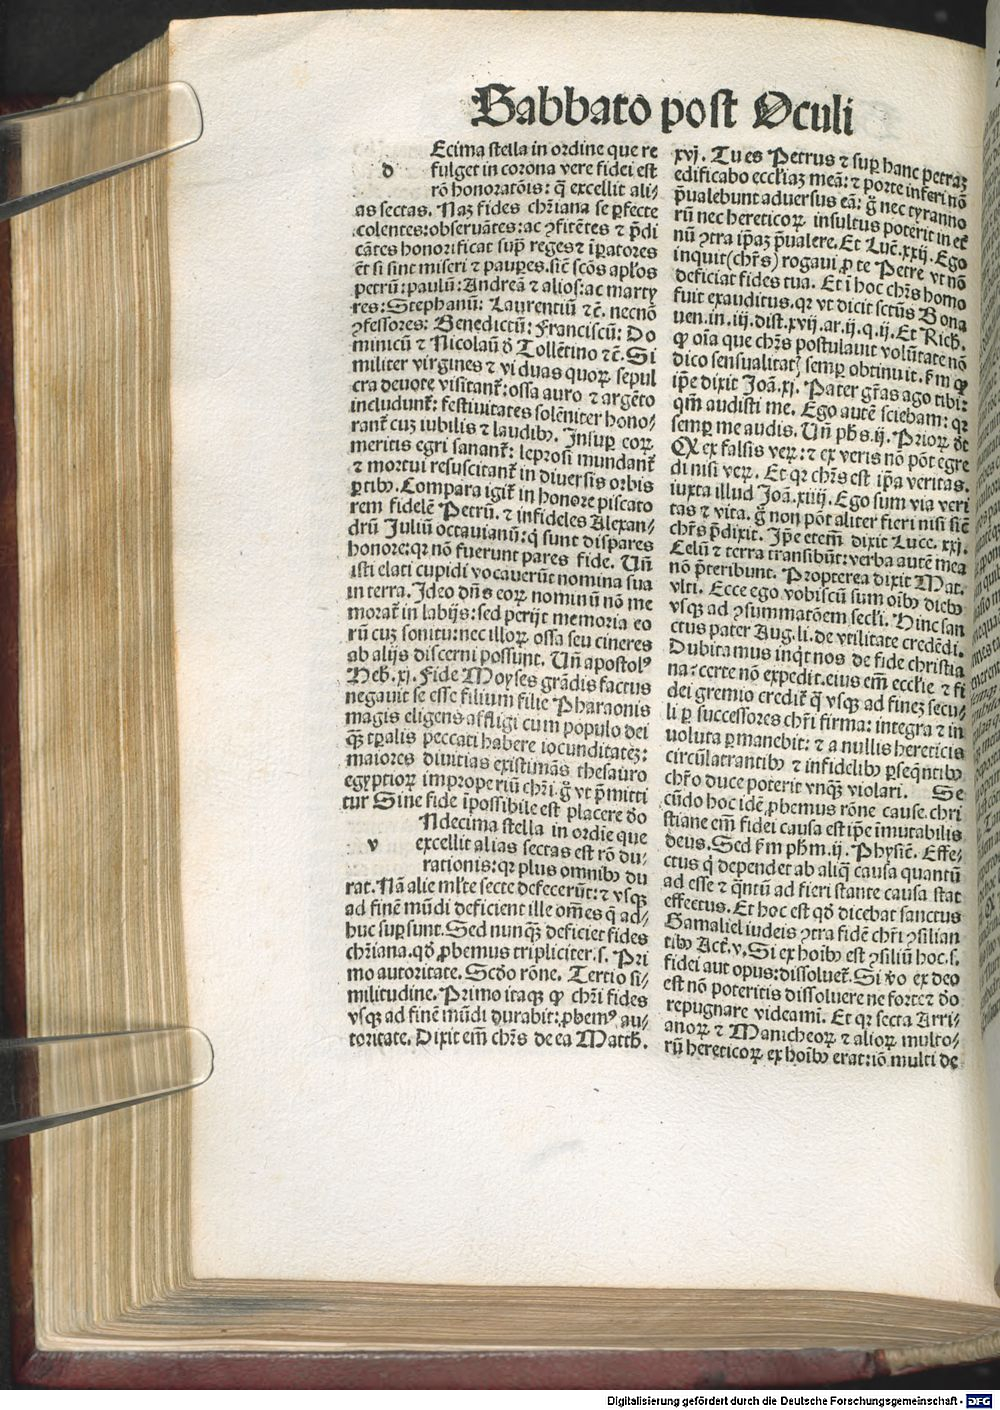 Sabbato post Oculi
Ecima stella in ordine que re
d fulget in corona vere fidei est
rō honoratōis: q̄ excellit ali-
as sectas. Naꝫ fides chr̄iana se ꝑfecte
colentes: obseruātes: ac ꝯfitētes ⁊ p̄di
cātes honorificat suꝑ reges ⁊ īꝑatores
ēt si sint miseri ⁊ pauꝑes. sic̄ scōs apl̄os
petrū: paulū: Andreā ⁊ alios: ac marty
res: Stephanū: Laurentiū ⁊ c̄. necnō
ꝯfessores: Benedictū: Franciscū: Do
minicū ⁊ Nicolaū ō Tollētino ⁊ c̄. Si
militer virgines ⁊ viduas quoꝝ sepul
cra deuote visitant᷑: ossa auro ⁊ argēto
includunt᷑: festiuitates solēniter hono-
rant᷑ cuꝫ iubilis ⁊ laudibꝰ. Insuꝑ eoꝝ
meritis egri sanant᷑: leprosi mundant᷑
⁊ mortui resuscitant᷑ in diuersis orbis
ꝑtibꝰ. Compara igit᷑ in honore piscato
rem fidelē Petrū. ⁊ infideles Alexan-
drū Juliū octauianū: q̇ sunt dispares
honore: qꝛ nō fuerunt pares fide. Un̄
isti elati cupidi vocauerūt nomina sua
in terra. Ideo dn̄s eoꝝ nominū nō me
morat᷑ in labijs: sed perijt memoria eo
rū cuꝫ sonitu: nec illoꝝ ossa seu cineres
ab alijs discerni possunt. Un̄ apostolꝰ
Heb. xj. Fide Moyses grādis factus
negauit se esse filium filie Pharaonis
magis eligens affligi cum populo dei
qꝫ̄ tꝑalis peccati habere iocunditateꝫ:
maiores diuitias existimās thesauro
egyptioꝝ improperiū chr̄i. ḡ vt p̄mitti
tur Sine fide īpossibile est placere ðo
Ndecima stella in ordie que
v excellit alias sectas est rō du-
rationis: qꝛ plus omnibꝰ du
rat. Nā alie ml̄te secte defecerūt: ⁊ vsqꝫ
ad finē mūdi deficient ille om̄es q̄ ad-
huc suꝑsunt. Sed nunqꝫ̄ deficiet fides
chr̄iana. qð ꝓbemus tripliciter. s. Pri
mo autoritate. Scðo rōne. Tertio si-
militudine. Primo itaqꝫ ꝙ chr̄i fides
vsqꝫ ad finē mūdi durabit: ꝓbemꝰ au-
toritate. Dixit em̄ chr̄s de ea Matth.
xvj. Tu es Petrus ⁊ suꝑ hanc petraꝫ
edificabo eccl̄iaꝫ meā: ⁊ porte inferi nō
p̄ualebunt aduersus eā: ḡ nec tyranno
rū nec hereticoꝝ insultus poterit in et᷑
nū ꝯtra ip̄aꝫ p̄ualere. Et Luc̄. xxij. Ego
inquit (chr̄s) rogaui ꝓ te Petre vt nō
deficiat fides tua. Et ī hoc chr̄s homo
fuit exauditus. qꝛ vt dicit sctūs Bona
uen. in. iij. dist. xvij. ar. ij. q. ij. Et Rich.
ꝙ oīa que chr̄s postulauit volūtate nō
dico sensualitatꝭ semꝑ obtinuit. ẜm ꝙ
ip̄e dixit Joā. xj. Pater gr̄as ago tibi:
qm̄ audisti me. Ego autē sciebam: qꝛ
semꝑ me audis. Un̄ ph̄s. ij. Prioꝝ ðt
Qꝙ ex falsis veꝝ: ⁊ ex veris nō pōt egre
di nisi veꝝ. Et qꝛ chr̄s est ip̄a veritas.
iuxta illud Joā. xiiij. Ego sum via veri
tas ⁊ vita. ḡ non pōt aliter fieri nisi sic̄
chr̄s p̄dixit. Ip̄e etem̄ dixit Luce. xxj.
Celū ⁊ terra transibūt: verba autē mea
nō p̄teribunt. Propterea dixit Mat.
vlti. Ecce ego vobiscū sum oībꝰ diebꝰ
vsqꝫ ad ꝯsummatōem secl̄i. Hinc san
ctus pater Aug. li. de vtilitate credēdi.
Dubitamus inq̇t nos de fide christia
na: certe nō expedit. eius em̄ eccl̄ie ⁊ fi
dei gremio credit᷑ q̄ vsqꝫ ad fineꝫ secu-
li ꝑ successores chr̄i firma: integra ⁊ in
uoluta ꝑmanebit: ⁊ a nullis hereticis
circūlatrantibꝰ ⁊ infidelibꝰ ꝑseq̄ntibꝰ
chr̄o duce poterit vnqꝫ̄ violari. Se
cūdo hoc idē ꝓbemus rōne cause. chri
stiane em̄ fidei causa est ip̄e īmutabilis
deus. Sed ẜm ph̄m. ij. Physic̄. Effe-
ctus q̇ dependet ab aliq̄ causa quantū
ad esse ⁊ q̄ntū ad fieri stante causa stat
effectus. Et hoc est qð dicebat sanctus
Gamaliel iudeis ꝯtra fidē chr̄i ꝯsilian
tibꝰ Act᷑. v. Si ex hoībꝰ est ꝯsiliū hoc. s.
fidei aut opus: dissoluet᷑. Si v̄o ex deo
est nō poteritis dissoluere ne forte ⁊ ðo
repugnare videami. Et qꝛ secta Arri-
anoꝝ ⁊ Manicheoꝝ ⁊ alioꝝ multo-
rū hereticoꝝ ex hoībꝰ erat: iō multi de
Digitalisierung gefördert durch die Deutsche Forschungsgemeinschaft - DFG